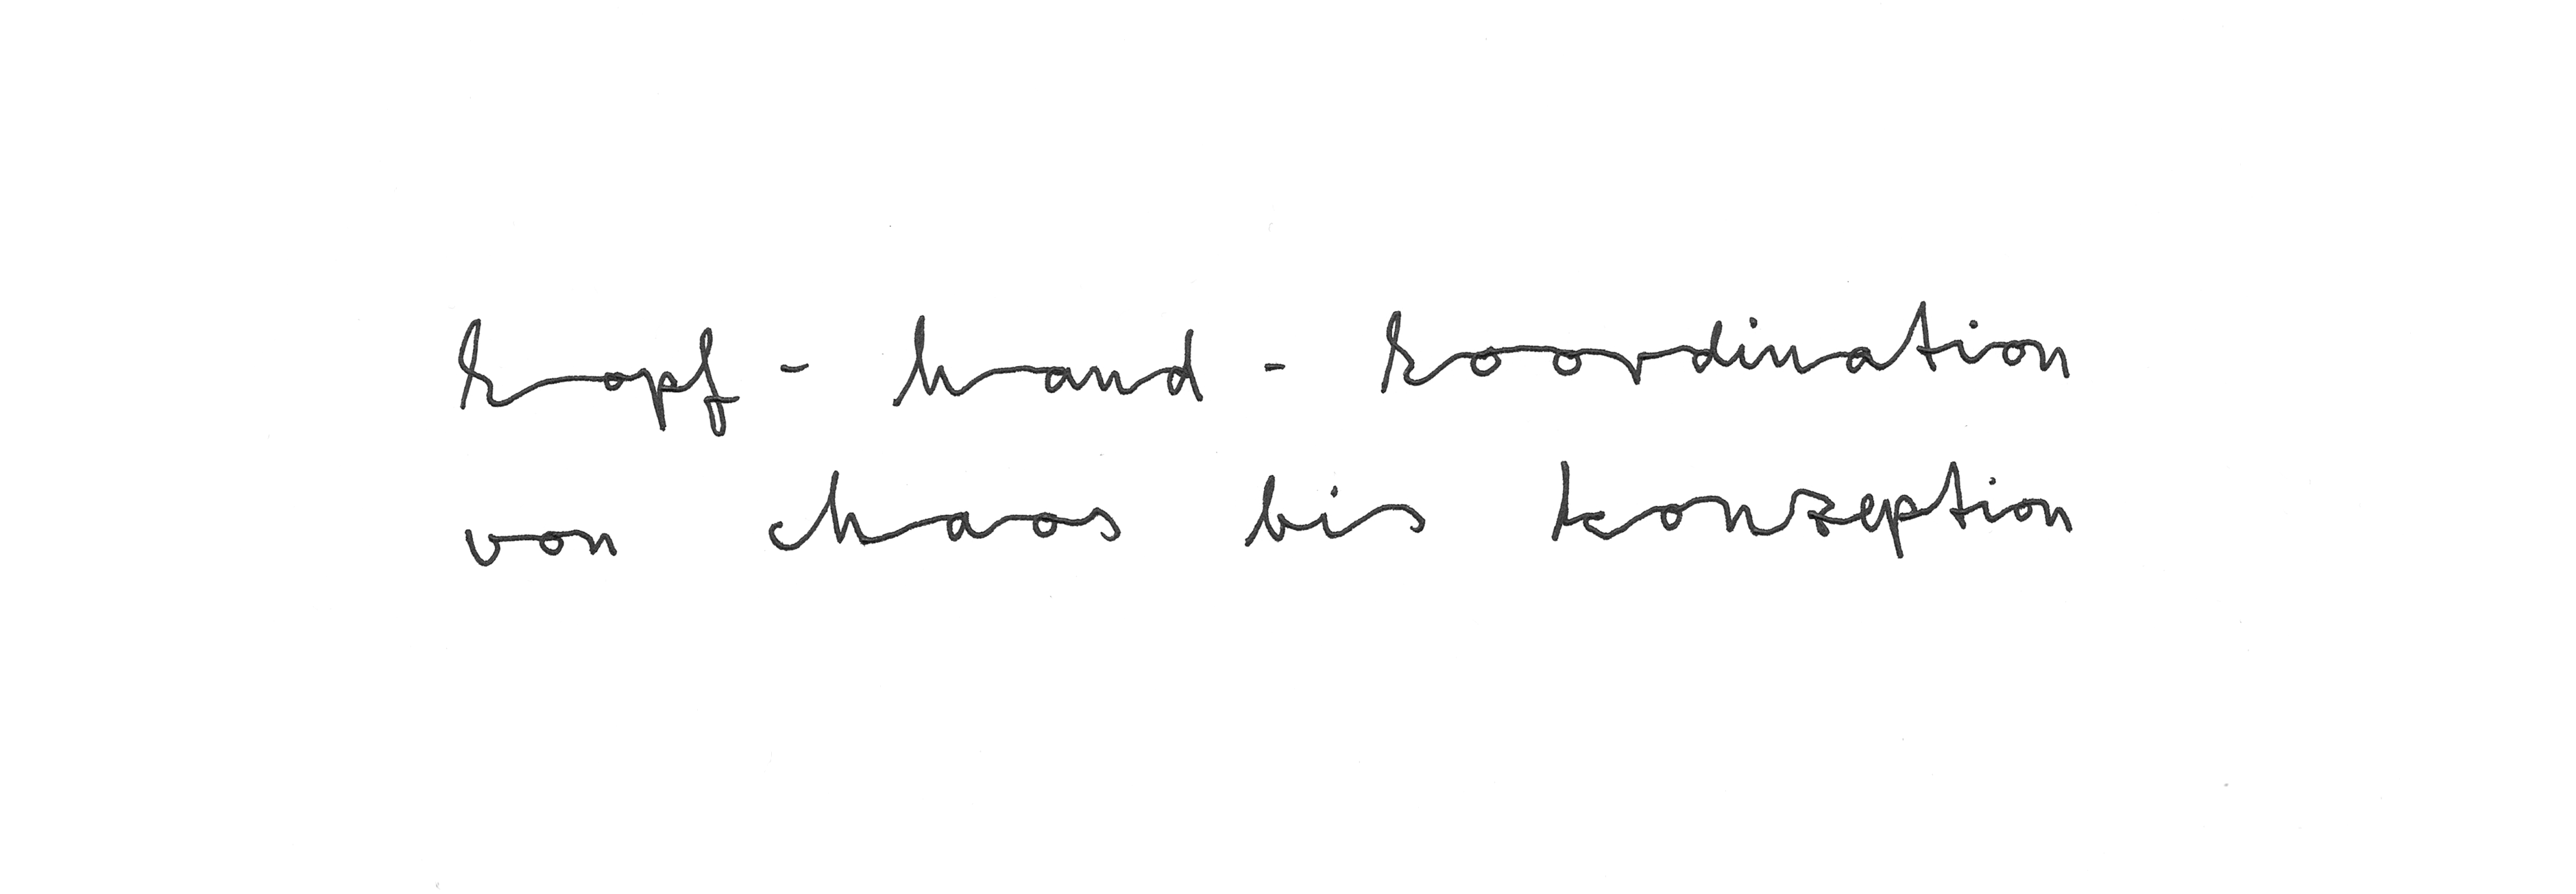 kopf - hand - koordination
von chaos bis konzeption